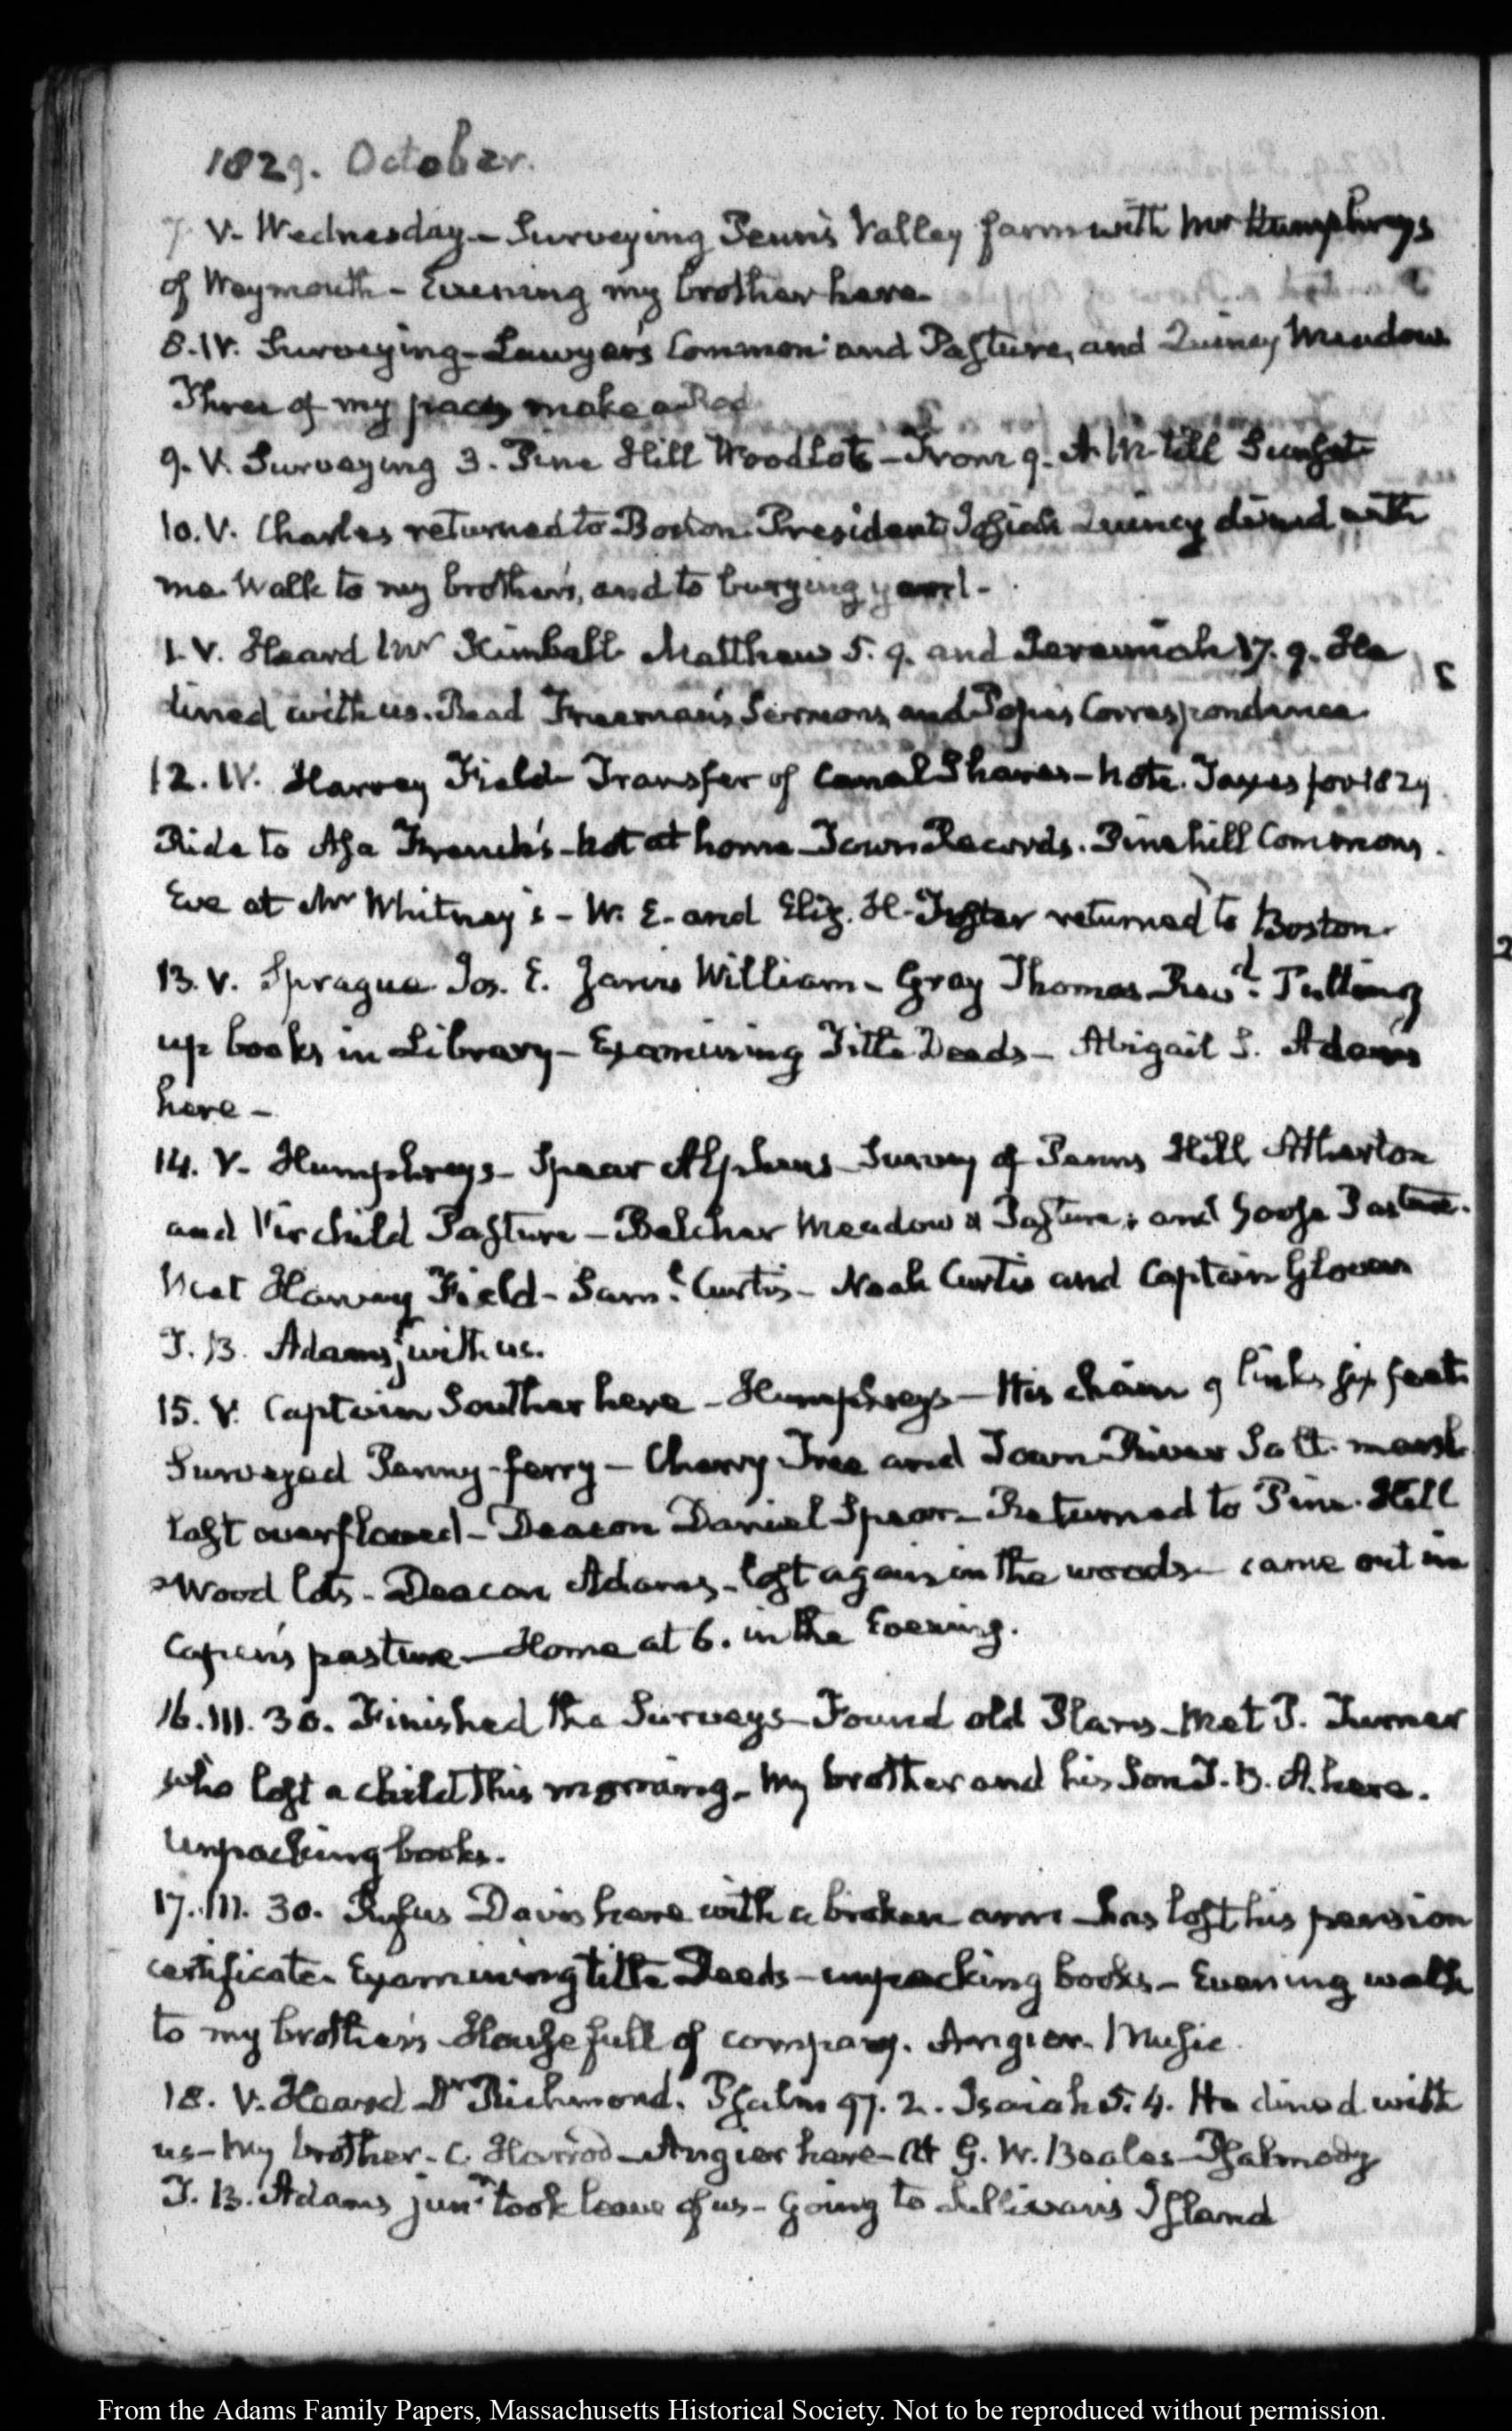 1829. October.
7 V. Wednesday - Surveying Penn's Valley farm with Mr Humphreys
of Weymouth - Evening my brother here.
8. IV. Surveying - Lawyer's Common and Pasture, and Quincy Meadow
Three of my paces make a Rod
9. V. Surveying 3. Pine Hill Woodlots - From 9. A.M. till Sunset
10. V. Charles returned to Boston. President Josiah Quincy dined with
me. Walk to my brother's, and to burying yard -
1. V. Heard Mr Kimball Matthew 5. 9. and Jeremiah 17. 9. He
dined with us. Read Freeman's Sermons, and Pope's Correspondence
12. IV. Harvey Field - Transfer of Canal Shares - Note. Taxes for 1829
Ride to Asa French's - not at home - Town Records. Pinehill Commons.
Eve at Mr Whitney's - W. E. and Eliz. H. Foster returned to Boston.
13. V. Sprague Jos. E. Jarvis William - Gray Thomas Revd. Putting
up books in Library - Examining Title Deeds - Abigail S. Adams
here -
14. V. Humphreys - Spear Alpheus - Survey of Penns Hill Atherton
and Verchild Pasture - Belcher Meadow & Pasture; and Goose Pasture.
Met Harvey Field - Saml. Curtis - Noah Curtis and Captain Glover
T. B. Adams jr with us.
15. V. Captain Souther here - Humphreys - His chain 9 links six feet
Surveyed Penny-ferry - Cherry Tree and Town River Salt marsh
last overflowed - Deacon Daniel Spear - Returned to Pine Hill
Wood lots - Deacon Adams - lost again in the woods - came out in
Capen's pasture - Home at 6. in the Evening.
16. III. 30. Finished the Surveys - Found old Plans - Met P. Turner
who lost a child this morning - My brother and his Son T. B. A. here.
Unpacking books.
17. III. 30. Rufus Davis here with a broken arm - has lost his pension
certificate. Examining title Deeds - unpacking books - Evening walk
to my brother's - House full of company. Angier. Music
18. V. Heard Dr Richmond. Psalm 97. 2. Isaiah 5. 4. He dined with
us - My brother - C. Harrod - Angier here - At G. W. Beales - Psalmody
T. B. Adams junr. took leave of us - Going to Sullivan's Island
From the Adams Family Papers, Massachusetts Historical Society. Not to be reproduced without permission.